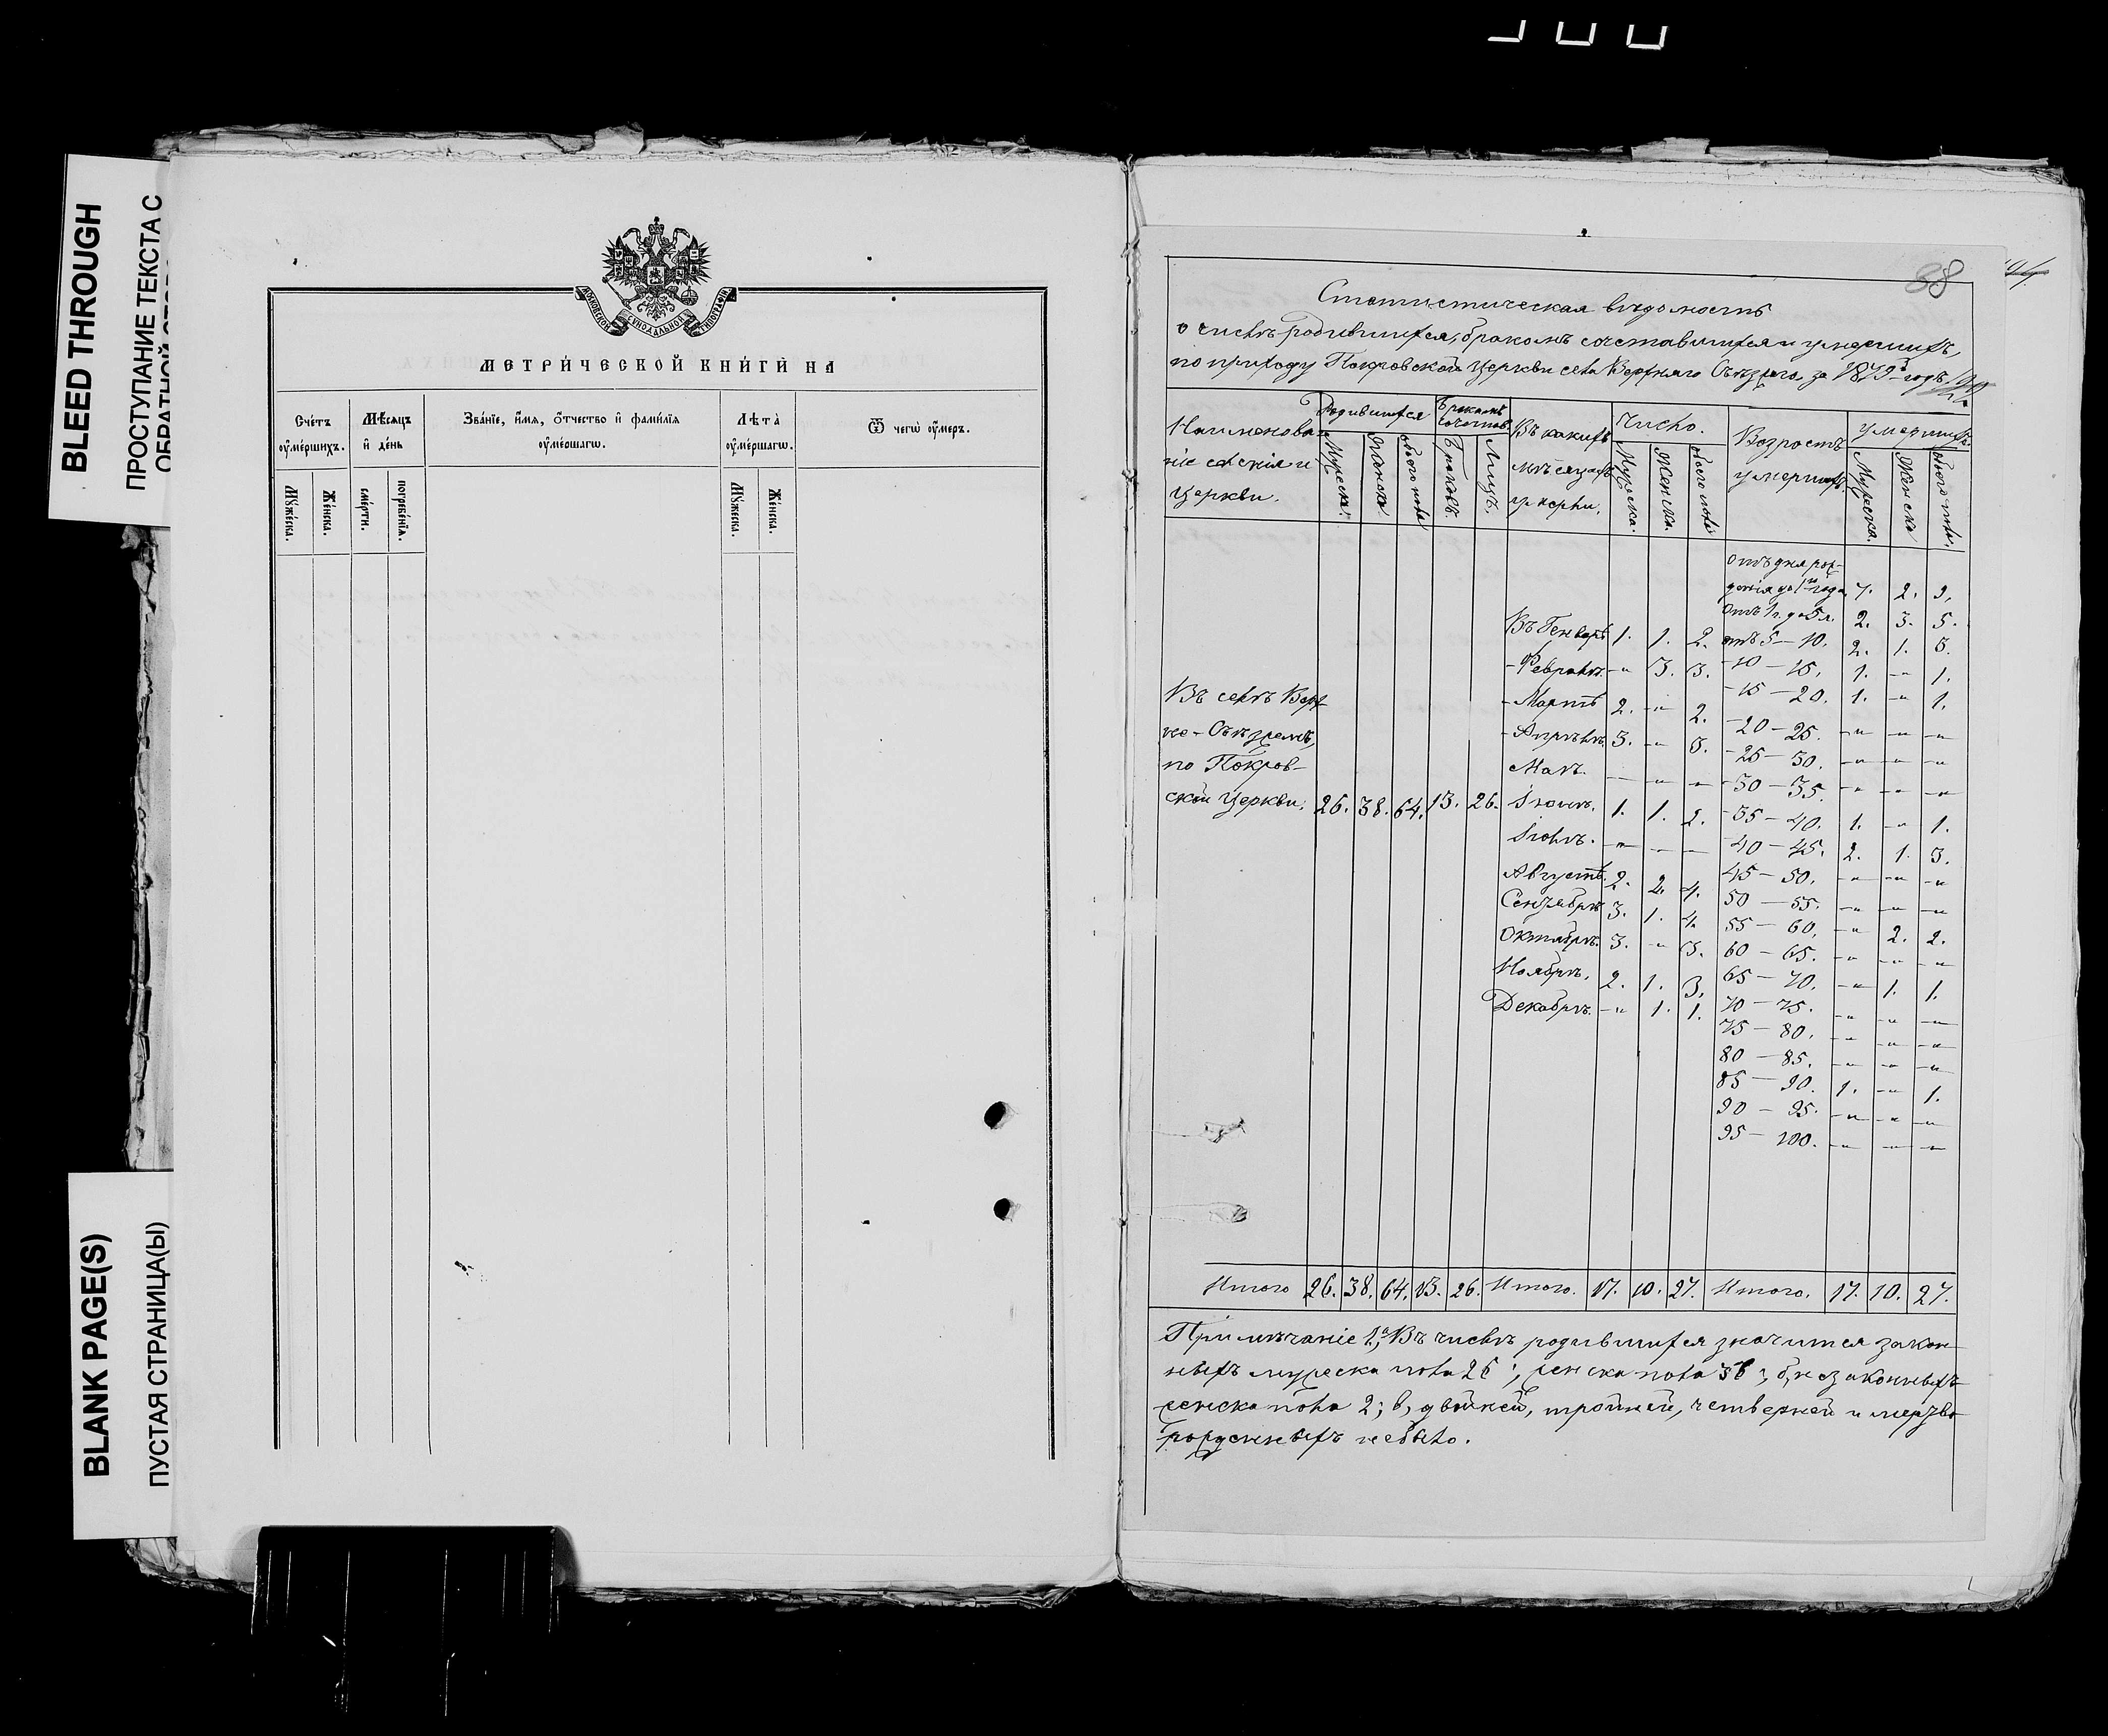 BLEED THROUGH
ПРОСТУПАНИЕ ТЕКСТА С
ОБРАТНОЙ
BLANK PAGE(S)
ПУСТАЯ СТРАНИЦА(Ы)
МОСКОВСКОЙ СѴНОДАЛЬНОЙ ТИПОГРАФІИ
МЕТРИ́ЧЕСКОЙ КНИ́ГИ НА
Сче́тъ ᲂу҆ме́ршихъ.
Мѣ́сяцъ и҆ де́нь
Зва́нїе, и҆́мѧ, ѻ҆́тчество и҆ фами́лїѧ ᲂу҆ме́ршагѡ.
Лѣ́та ᲂу҆ме́ршагѡ.
Ѿ чегѡ̀ ᲂу҆́меръ.
Мꙋ́жеска.
Же́нска.
сме́рти.
погребе́нїѧ.
Мꙋ́жеска.
Же́нска.
38
Статистическая вѣдомость
о числѣ родившихся, бракомъ сочетавшихся и умершихъ,
по приходу Покровской церкви села Верхняго за 1879й годъ
Наименова-
ніе селенія и
церкви.
Родившихся
Мужеска.
Женска.
обоего пола
Бракомъ
сочетав.
Браковъ.
Лицъ.
Въ какихъ
мѣсяцахъ
умерли.
Число.
Мужеска.
Женска.
обоего пола
Возрастъ
умершихъ.
умершихъ
Мужеска.
Женска
обоего пола.
отъ дня рож-
денія до 1го года 7. 2. 9.
отъ 1 г. до 5 л. 2. 3. 5.
Въ Генварѣ 1. 1. 2. отъ 5 — 10. 2. 1. 3.
- Февралѣ. - " 3. 3. - 10 — 15. 1. - " 1.
- 15 — 20. 1. - " 1.
Въ селѣ Верх
- Мартѣ 2. - " 2. - 20 — 25. - " - " - "
- Апрѣлѣ. 3. - " 3. - 25 — 30. - " - " - "
по Покров-
Маѣ. — - " - " - 30 — 35. - " - " - "
ской церкви. 26. 38. 64. 13. 26. Іюнѣ. 1. 1. 2. - 35 — 40. 1. - " 1.
Іюлѣ. - " — — - 40 — 45. 2. 1. 3.
Августѣ. 2. 2. 4. 45 — 50. - " - " - "
Сентябрѣ 3. 1. 4. 50 — 55. - " - " - "
Октябрѣ. 3. - " 3. 55 — 60. - " 2. 2.
60 — 65. - " - " - "
Ноябрѣ. 2. 1. 3. 65 — 70. - " 1. 1.
Декабрѣ. - " 1. 1. 70 — 75. - " - " - "
75 — 80. - " - " - "
80 — 85. - " - " - "
85 — 90. 1. - " 1.
90 — 95. - " - " - "
95 — 100. - " - " - "
Итого 26. 38. 64. 13. 26. Итого. 17. 10. 27. Итого. 17. 10. 27.
Примѣчаніе 1, а, Въ числѣ родившихся значится закон-
ныхъ мужеска пола 26; женска пола 36; б, незаконныхъ
женска пола 2; в, двойней, тройней, четверней и мертво
рожденныхъ небыло.